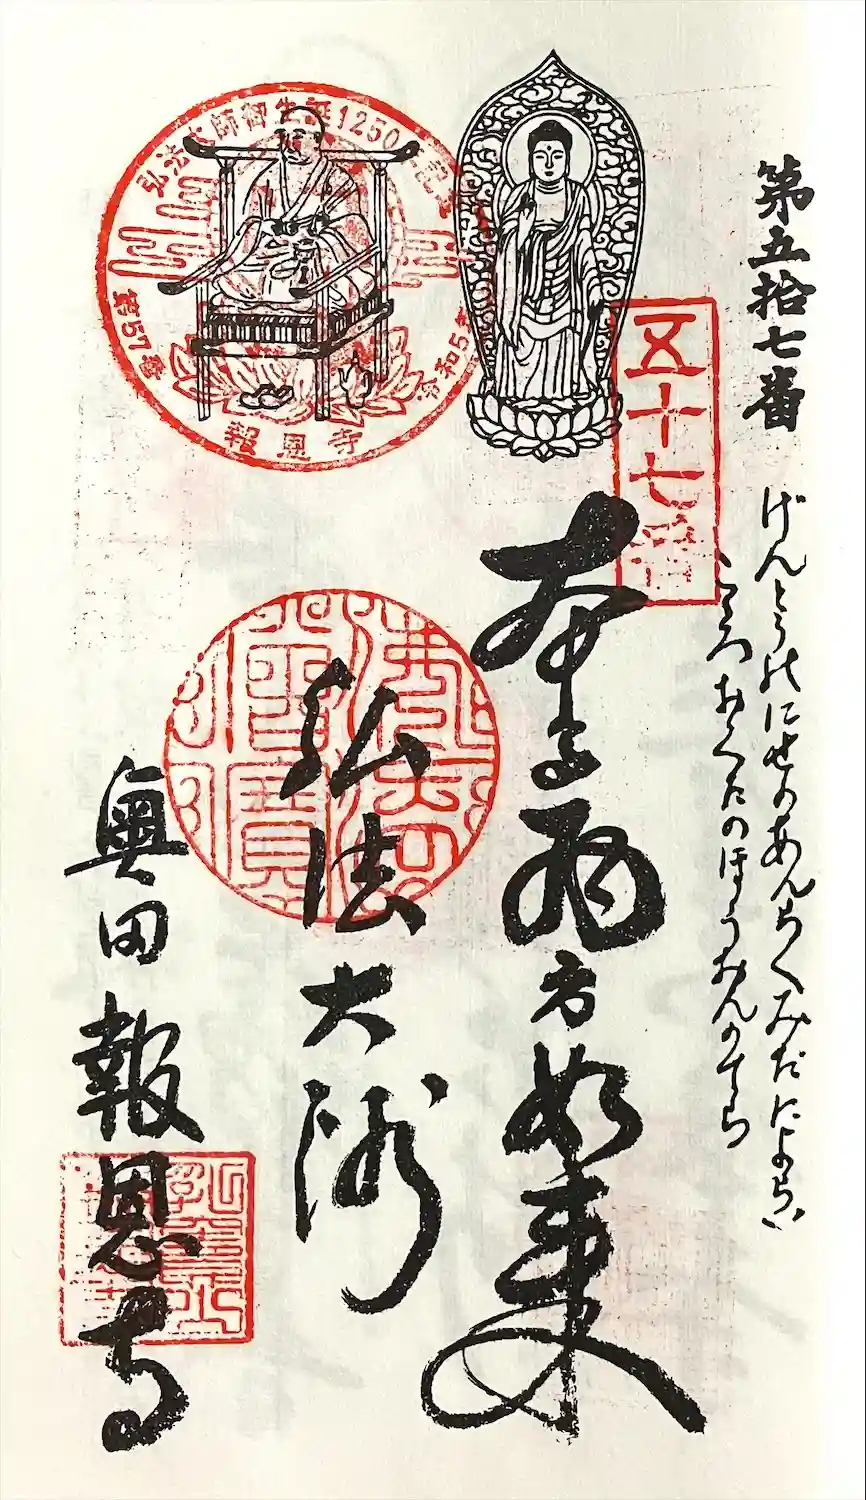 第五拾七番
げんとうのにせのあんらくみだによらい
こゝろおくたのほうおんのてら
五十七番
本尊西方如来
弘法大師
佛法僧寶
弘法大師御生誕1250年記念
第57番
令和5年
報恩寺
奥田報恩寺